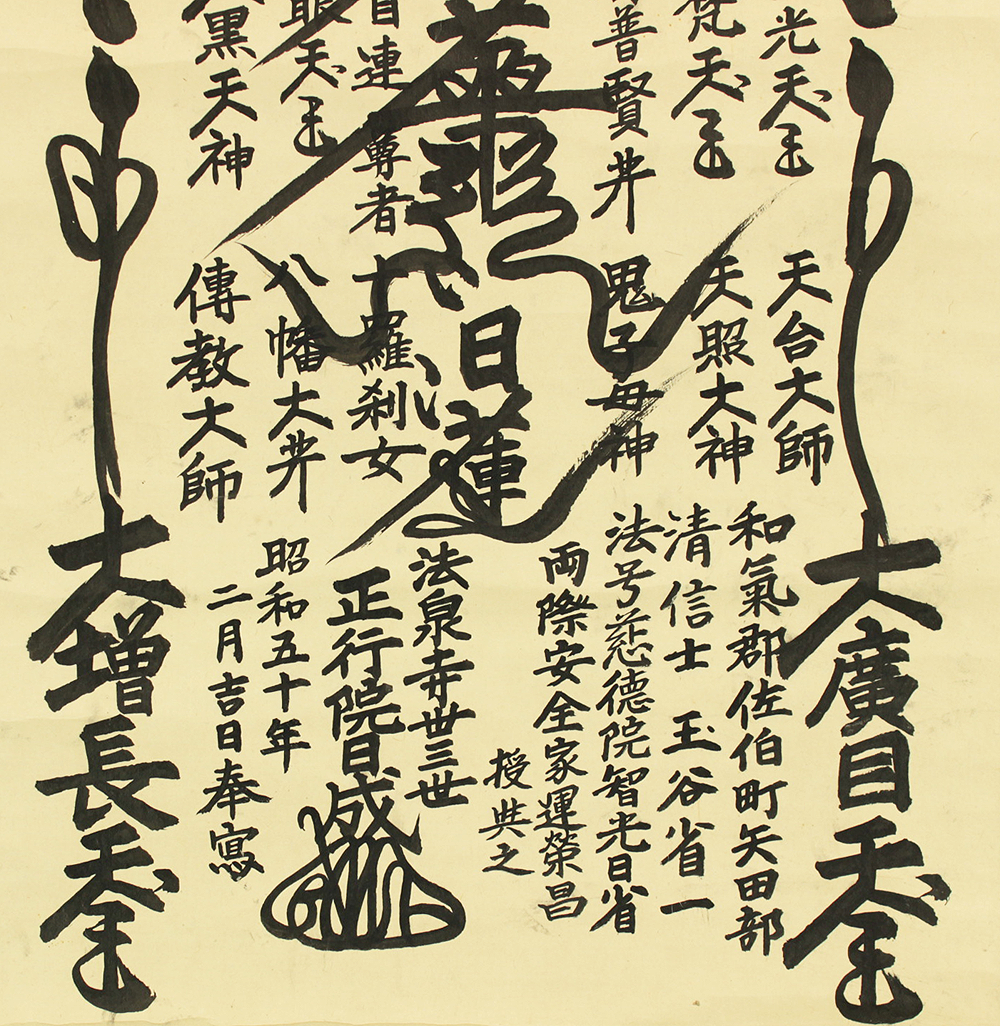 光天王
梵天王
普賢井
華経
目連尊者
眼天王
黒天神
天台大師
天照大神
鬼子母神
日蓮
十羅刹女
八幡大井
傳教大師
大廣目天王
和氣郡佐伯町矢田部
清信士 玉谷省一
法号慈德院智光日省
両際安全家運榮昌
授典之
法泉寺丗三世
正行院日成
昭和五十年
二月吉日奉寫
大增長天王